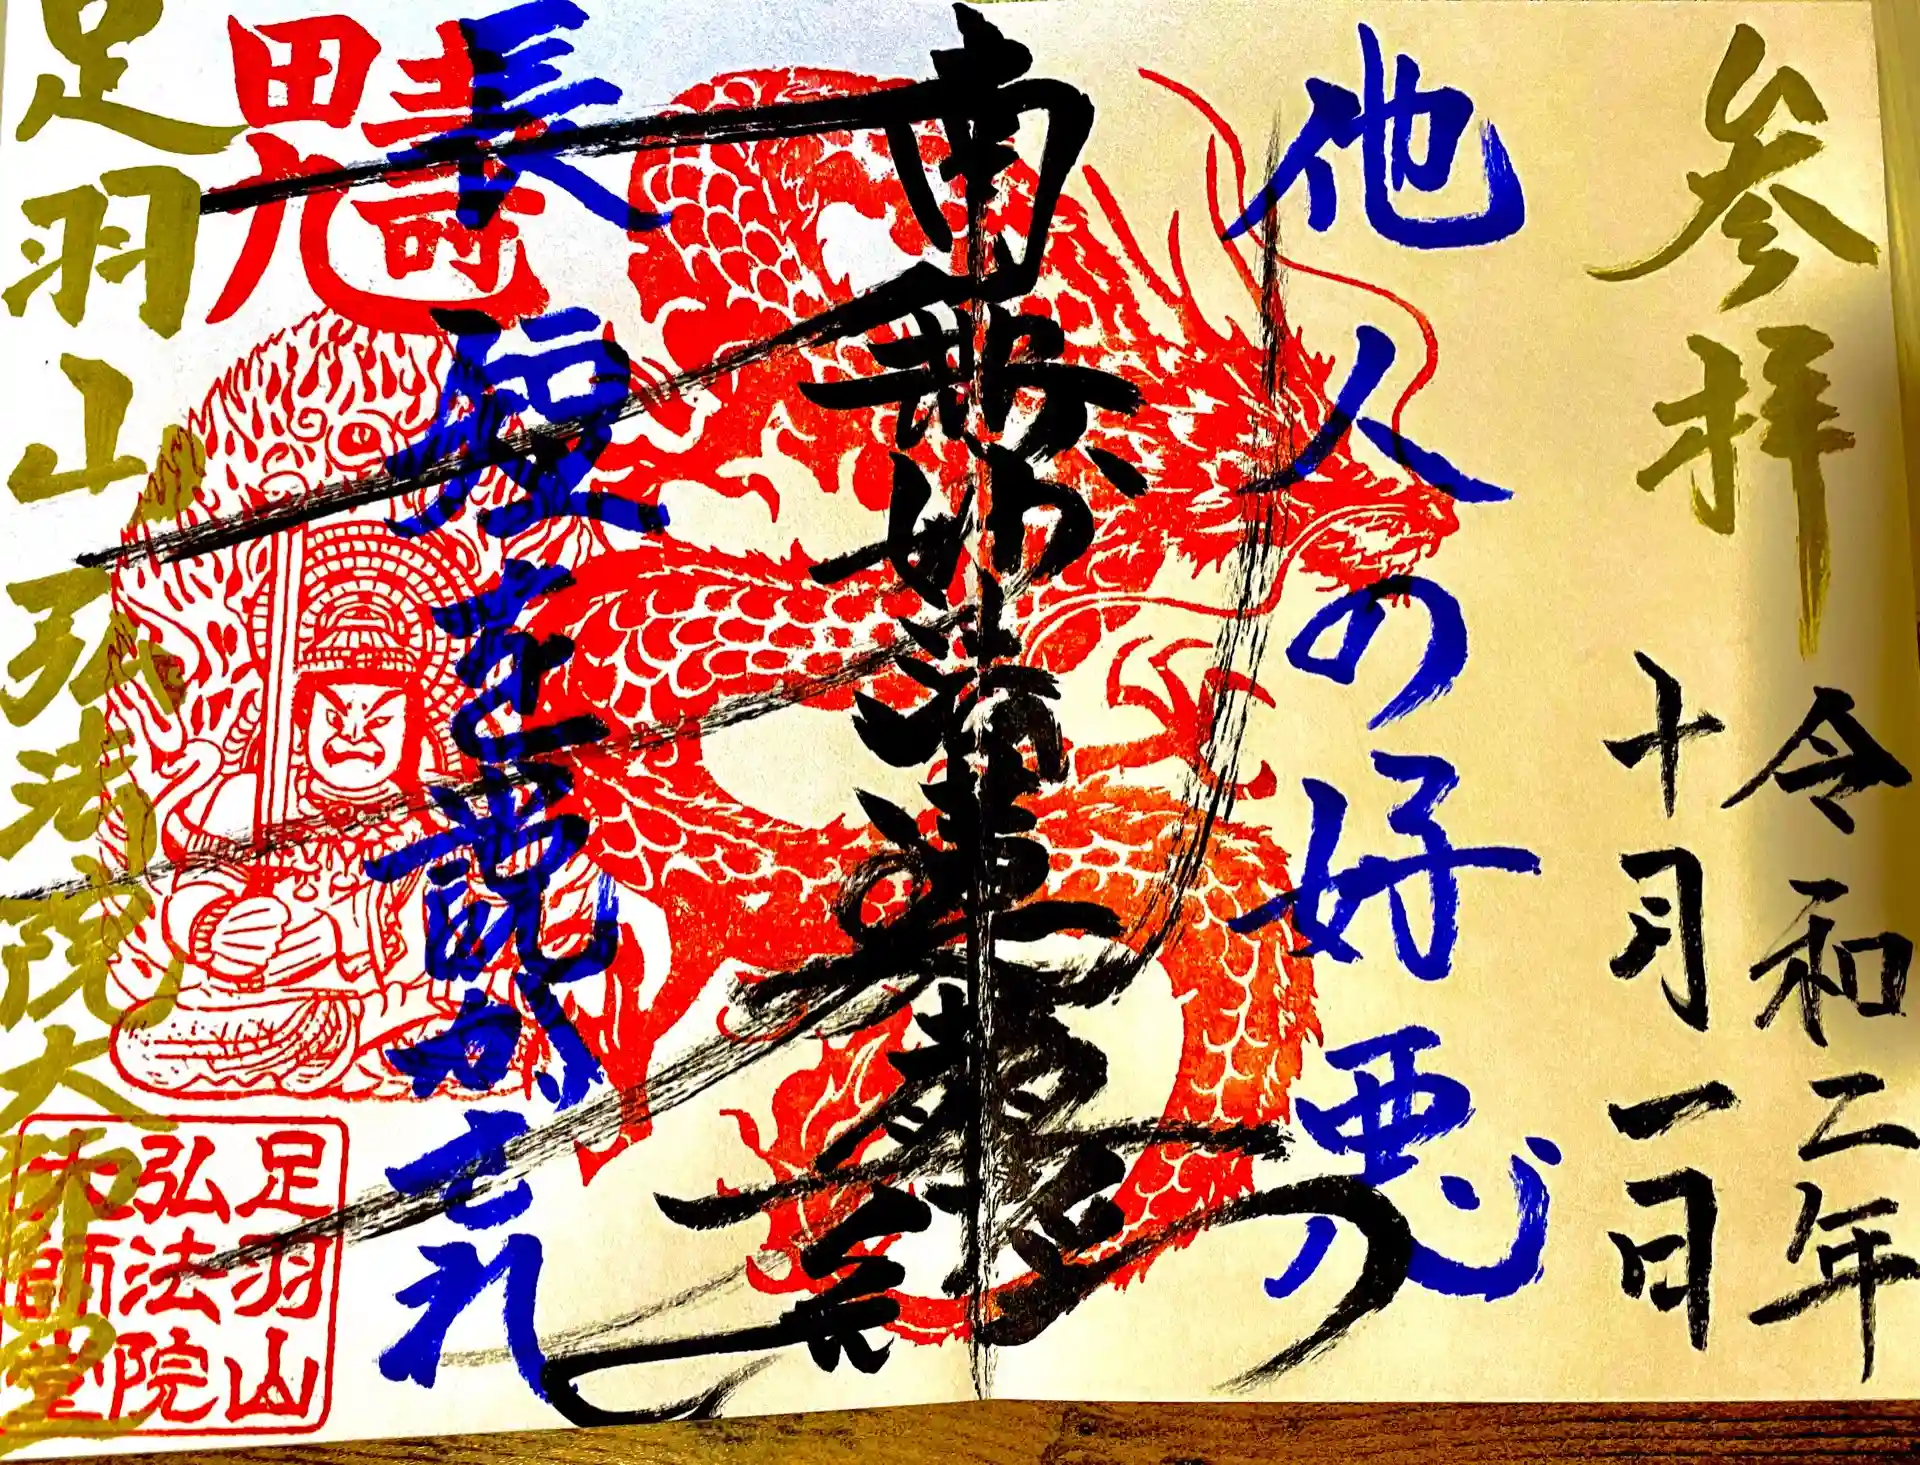 参拝
令和二年
十月一日
他人の好悪
南無妙法蓮華経
長短を説かされ
足羽山弘法院大師堂
足羽山
弘法院
大師堂